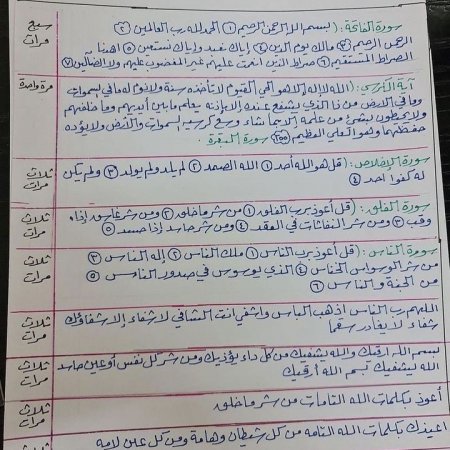 سورة الفاتحة: (بسم الله الرحمن الرحيم ١ الحمد لله رب العالمين ٢
سبع مرات
الرحمن الرحيم ٣ مالك يوم الدين ٤ إياك نعبد وإياك نستعين ٥ اهدنا
الصراط المستقيم ٦ صراط الذين انعمت عليهم غير المغضوب عليهم ولا الضالين ٧
آية الكرسي: (الله لا إله إلا هو الحي القيوم لا تأخذه سنة ولا نوم له ما في السموات
مرة واحدة
وما في الأرض من ذا الذي يشفع عنده إلا بإذنه يعلم ما بين أيديهم وما خلفهم
ولا يحيطون بشيء من علمه إلا بما شاء وسع كرسيه السموات والأرض ولا يؤده
حفظهما وهو العلي العظيم ٢٥٥) سورة البقرة
سورة الإخلاص: (قل هو الله أحد ١ الله الصمد ٢ لم يلد ولم يولد ٣ ولم يكن
له كفوا احد ٤
ثلاث مرات
سورة الفلق: (قل أعوذ برب الفلق ١ من شر ما خلق ٢ ومن شر غاسق إذا
وقب ٣ ومن شر النفاثات في العقد ٤ ومن شر حاسد إذا حسد ٥
ثلاث مرات
سورة الناس: (قل أعوذ برب الناس ١ ملك الناس ٢ إله الناس ٣
من شر الوسواس الخناس ٤ الذي يوسوس في صدور الناس ٥
من الجنة والناس ٦
ثلاث مرات
اللهم رب الناس اذهب الباس واشفي انت الشافي لا شفاء إلا شفاؤك
شفاء لا يغادر سقما
ثلاث مرات
بسم الله ارقيك والله يشفيك من كل داء يؤذيك ومن شر كل نفس أو عين حاسد
الله يشفيك بسم الله أرقيك
ثلاث مرات
أعوذ بكلمات الله التامات من شر ما خلق
ثلاث مرات
اعيذك بكلمات الله التامه من كل شيطان وهامة ومن كل عين لامه